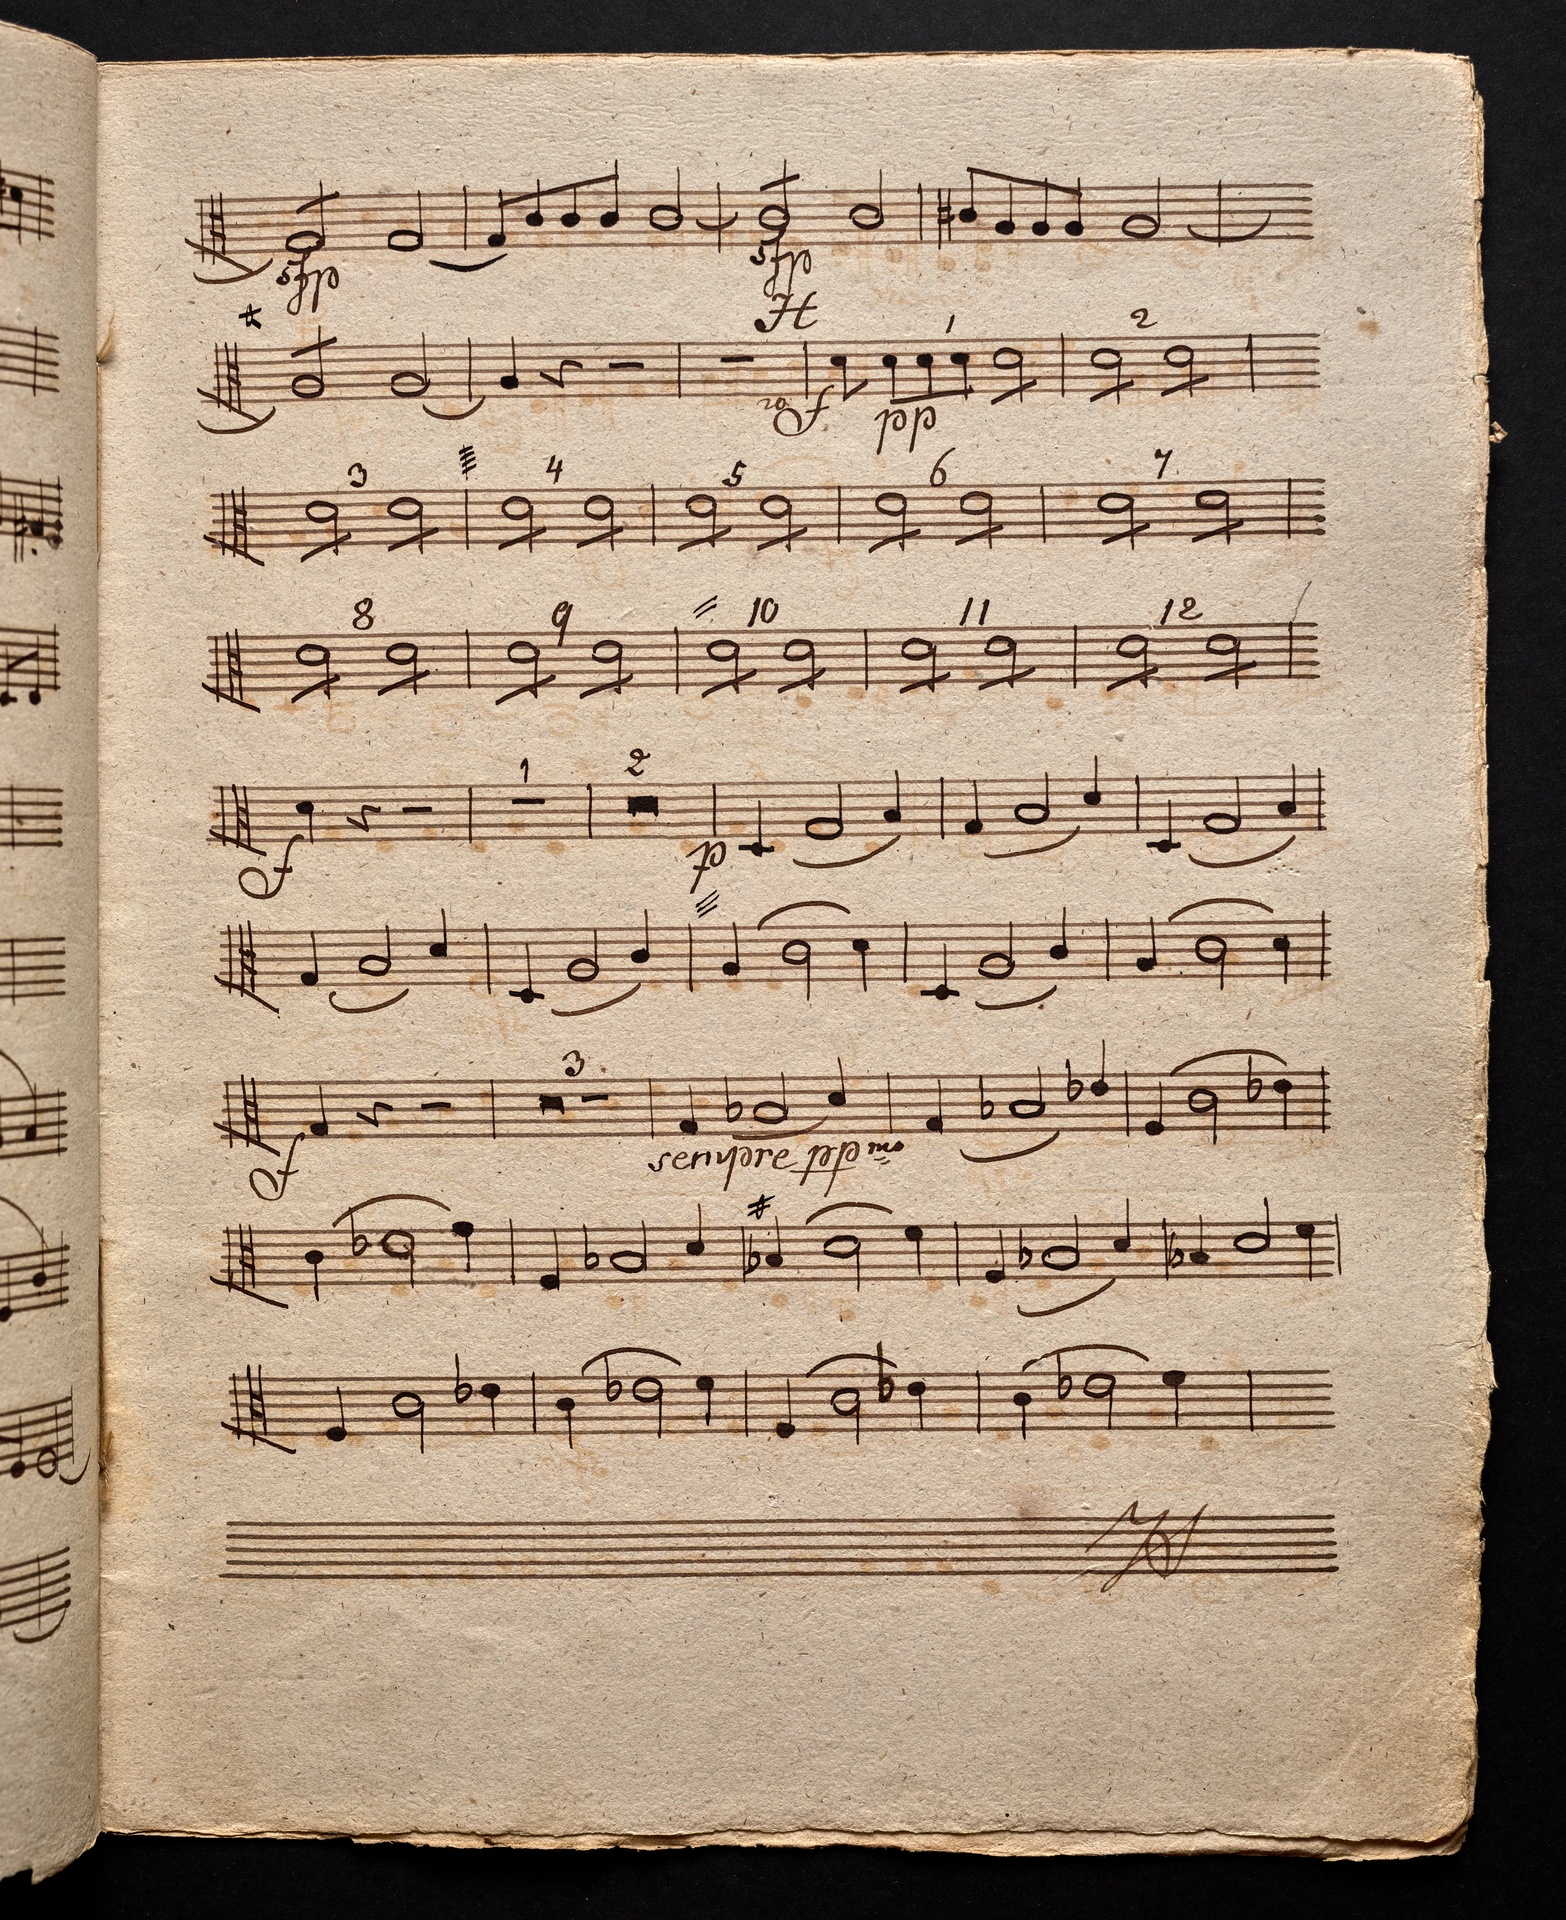 sfp sfp
H 1 2
f pp
3 4 5 6 7
8 9 10 11 12
1 2
f p
3
f sempre pp mo